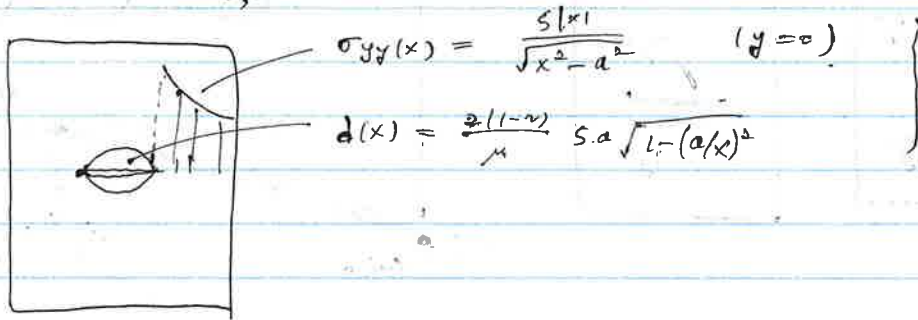 σyy(x) = S|x| / √(x² - a²) (y = 0)
d(x) = 2(1-ν) / μ S.a √(1-(a/x)²)